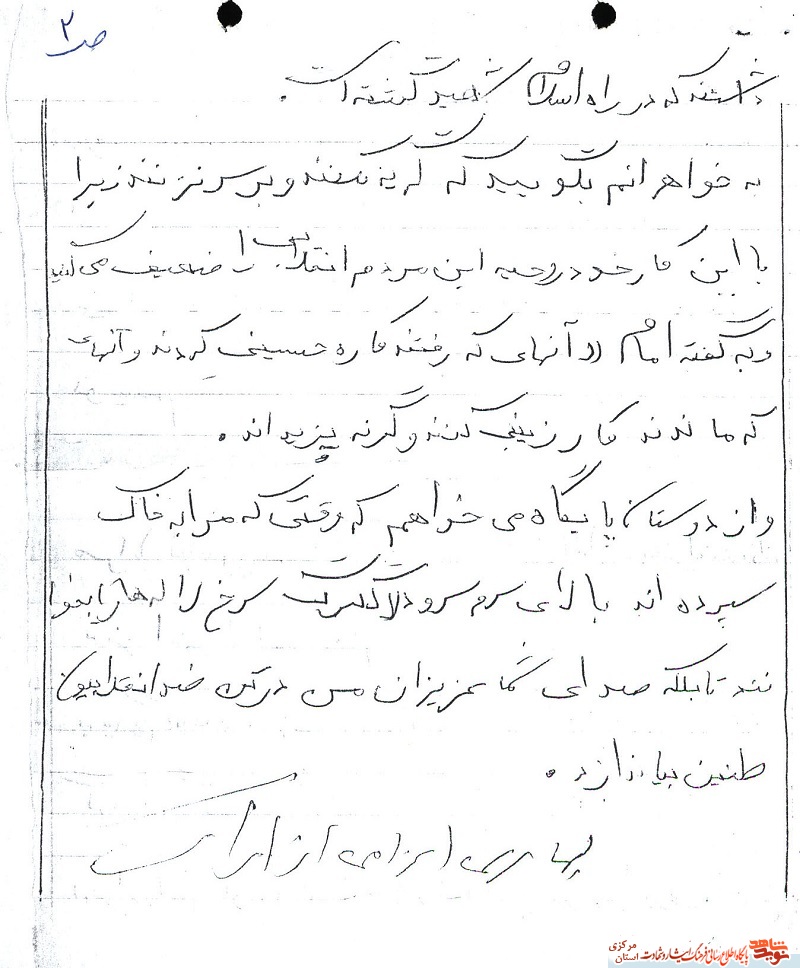 ص ۲
داشتند که در راه اسلام شهید گشته است.
به خواهرانم بگویید که گریه نکنند و بر سر نزنند زیرا
با این کار خود روحیه این مردم انقلابی را ضعیف می کنید
و به گفته امام (( آنهای که رفتند کاره حسینی کردند و آنهای
که ماندند کار زینبی کنند و گرنه یزیداند.
و از دوستان پایگاه می خواهم که وقتی که مرا به خاک
سپرده اند بالای سرم سرود گلگشت سرخ لاله ها را بخوا
نند تا بلکه صدای شما عزیزان من در تن ضد انقلابیون
طنین بیاندازد.
اعزامی از اراک
نوید شاهد
پایگاه اطلاع رسانی فرهنگ ایثار و شهادت
استان مرکزی